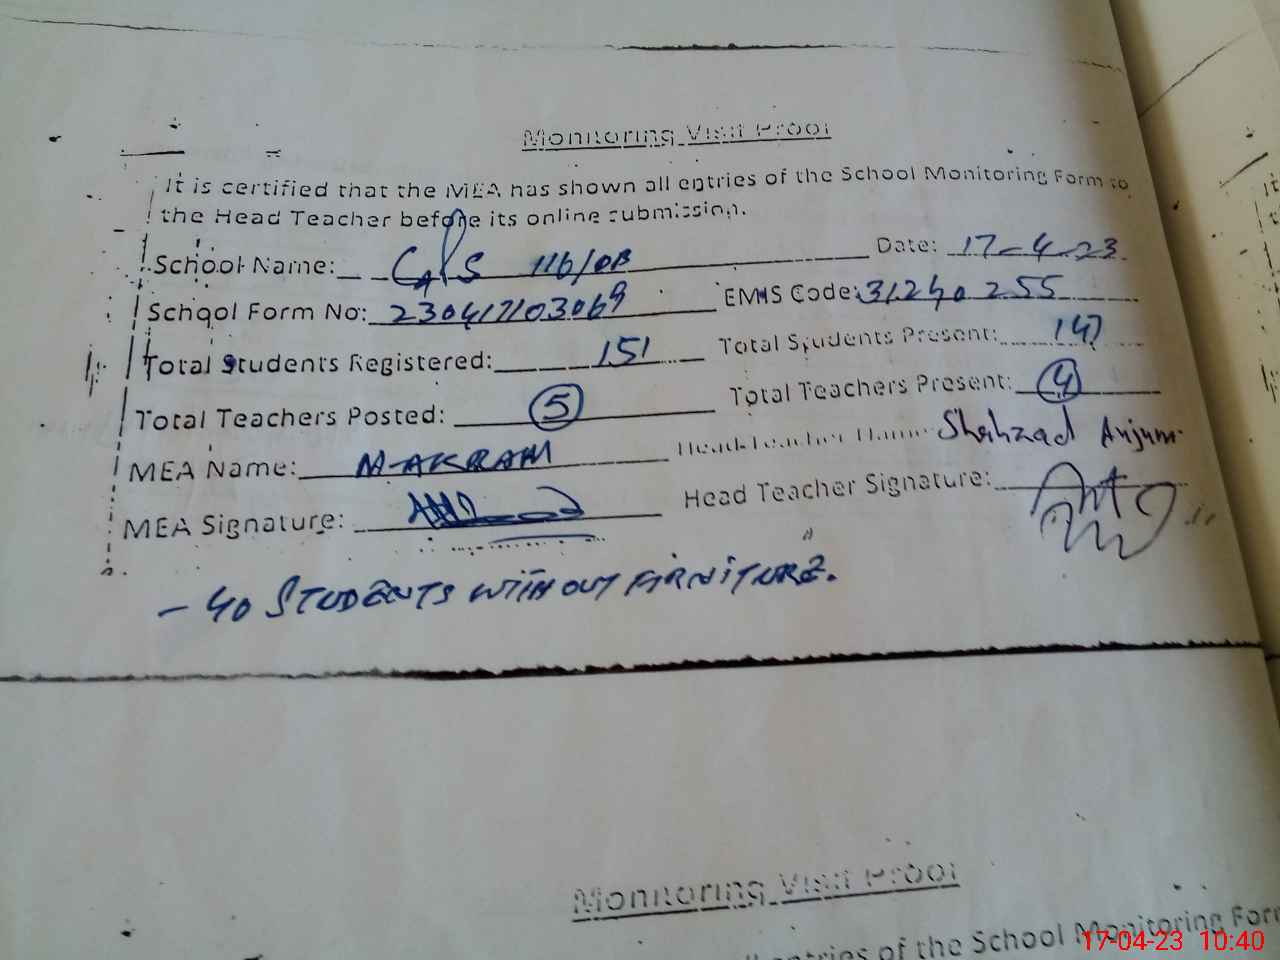 Monitoring Visit Proof
It is certified that the MEA has shown all entries of the School Monitoring Form to
the Head Teacher before its online submission.
School Name: GPS 116/DB Date: 17-4-23
School Form No: 230417103069 EMIS Code: 31240255
Total Students Registered: 151 Total Students Present: 147
Total Teachers Posted: 5 Total Teachers Present: 4
MEA Name: M-AKRAM Head Teacher Name: Shahzad Anjum
MEA Signature: Head Teacher Signature:
- 40 STUDENTS WITHOUT FURNITURE.
Monitoring Visit Proof
entries of the School Monitoring Form
17-04-23 10:40